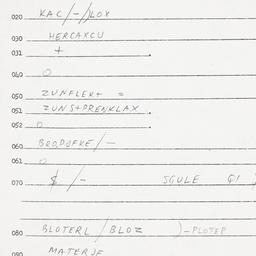 020 KAC/-/LOX
030 HERCAXCU
031 +
040 O
050 ZUNFLEKT =
051 ZUNST+PRENKLAX
052 O
060 BRODUFKE/-
061 O
070 $/- SGULE
080 BLOTERL/BLOZ )-PLOTEP
090 MATERJE